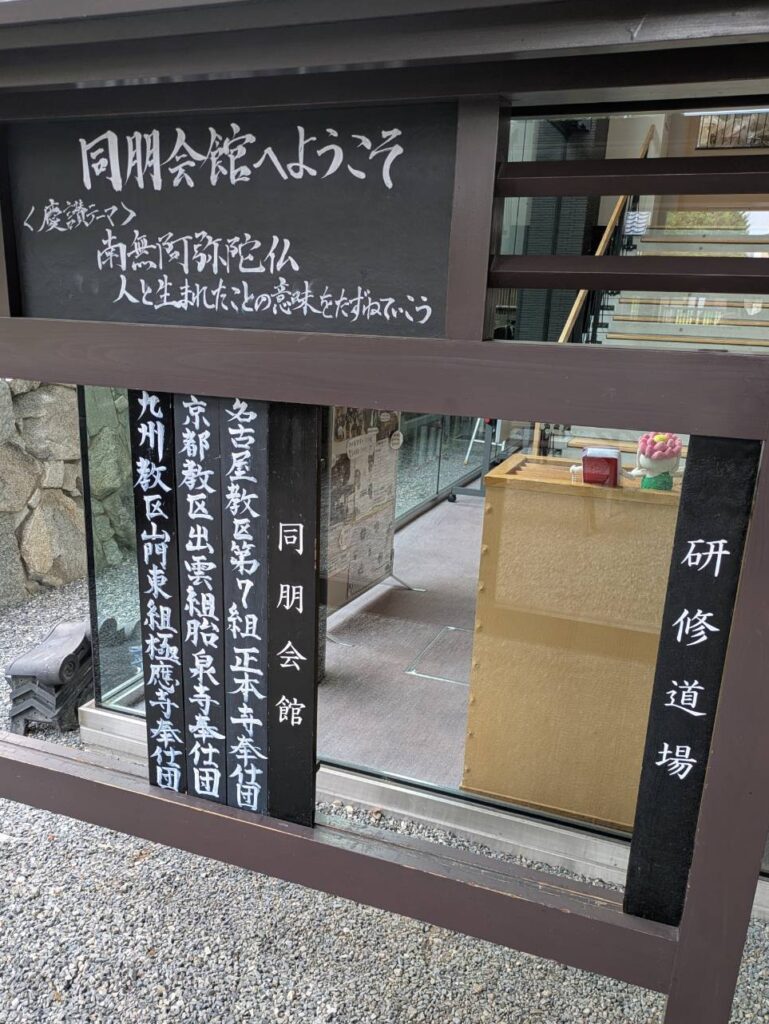 同朋会館へようこそ
〈慶讃テーマ〉
南無阿弥陀仏
人と生まれたことの意味をたずねていこう
研修道場
同朋会館
名古屋教区第7組 正本寺奉仕団
京都教区出雲組胎泉寺奉仕団
九州教区山門東組極應寺奉仕団